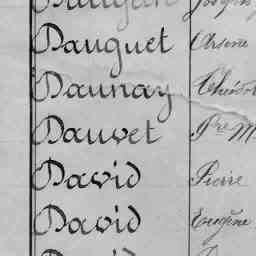 Dauguet Arsene
Daunay
Dauvet Pre M
David Pierre
David Eugène